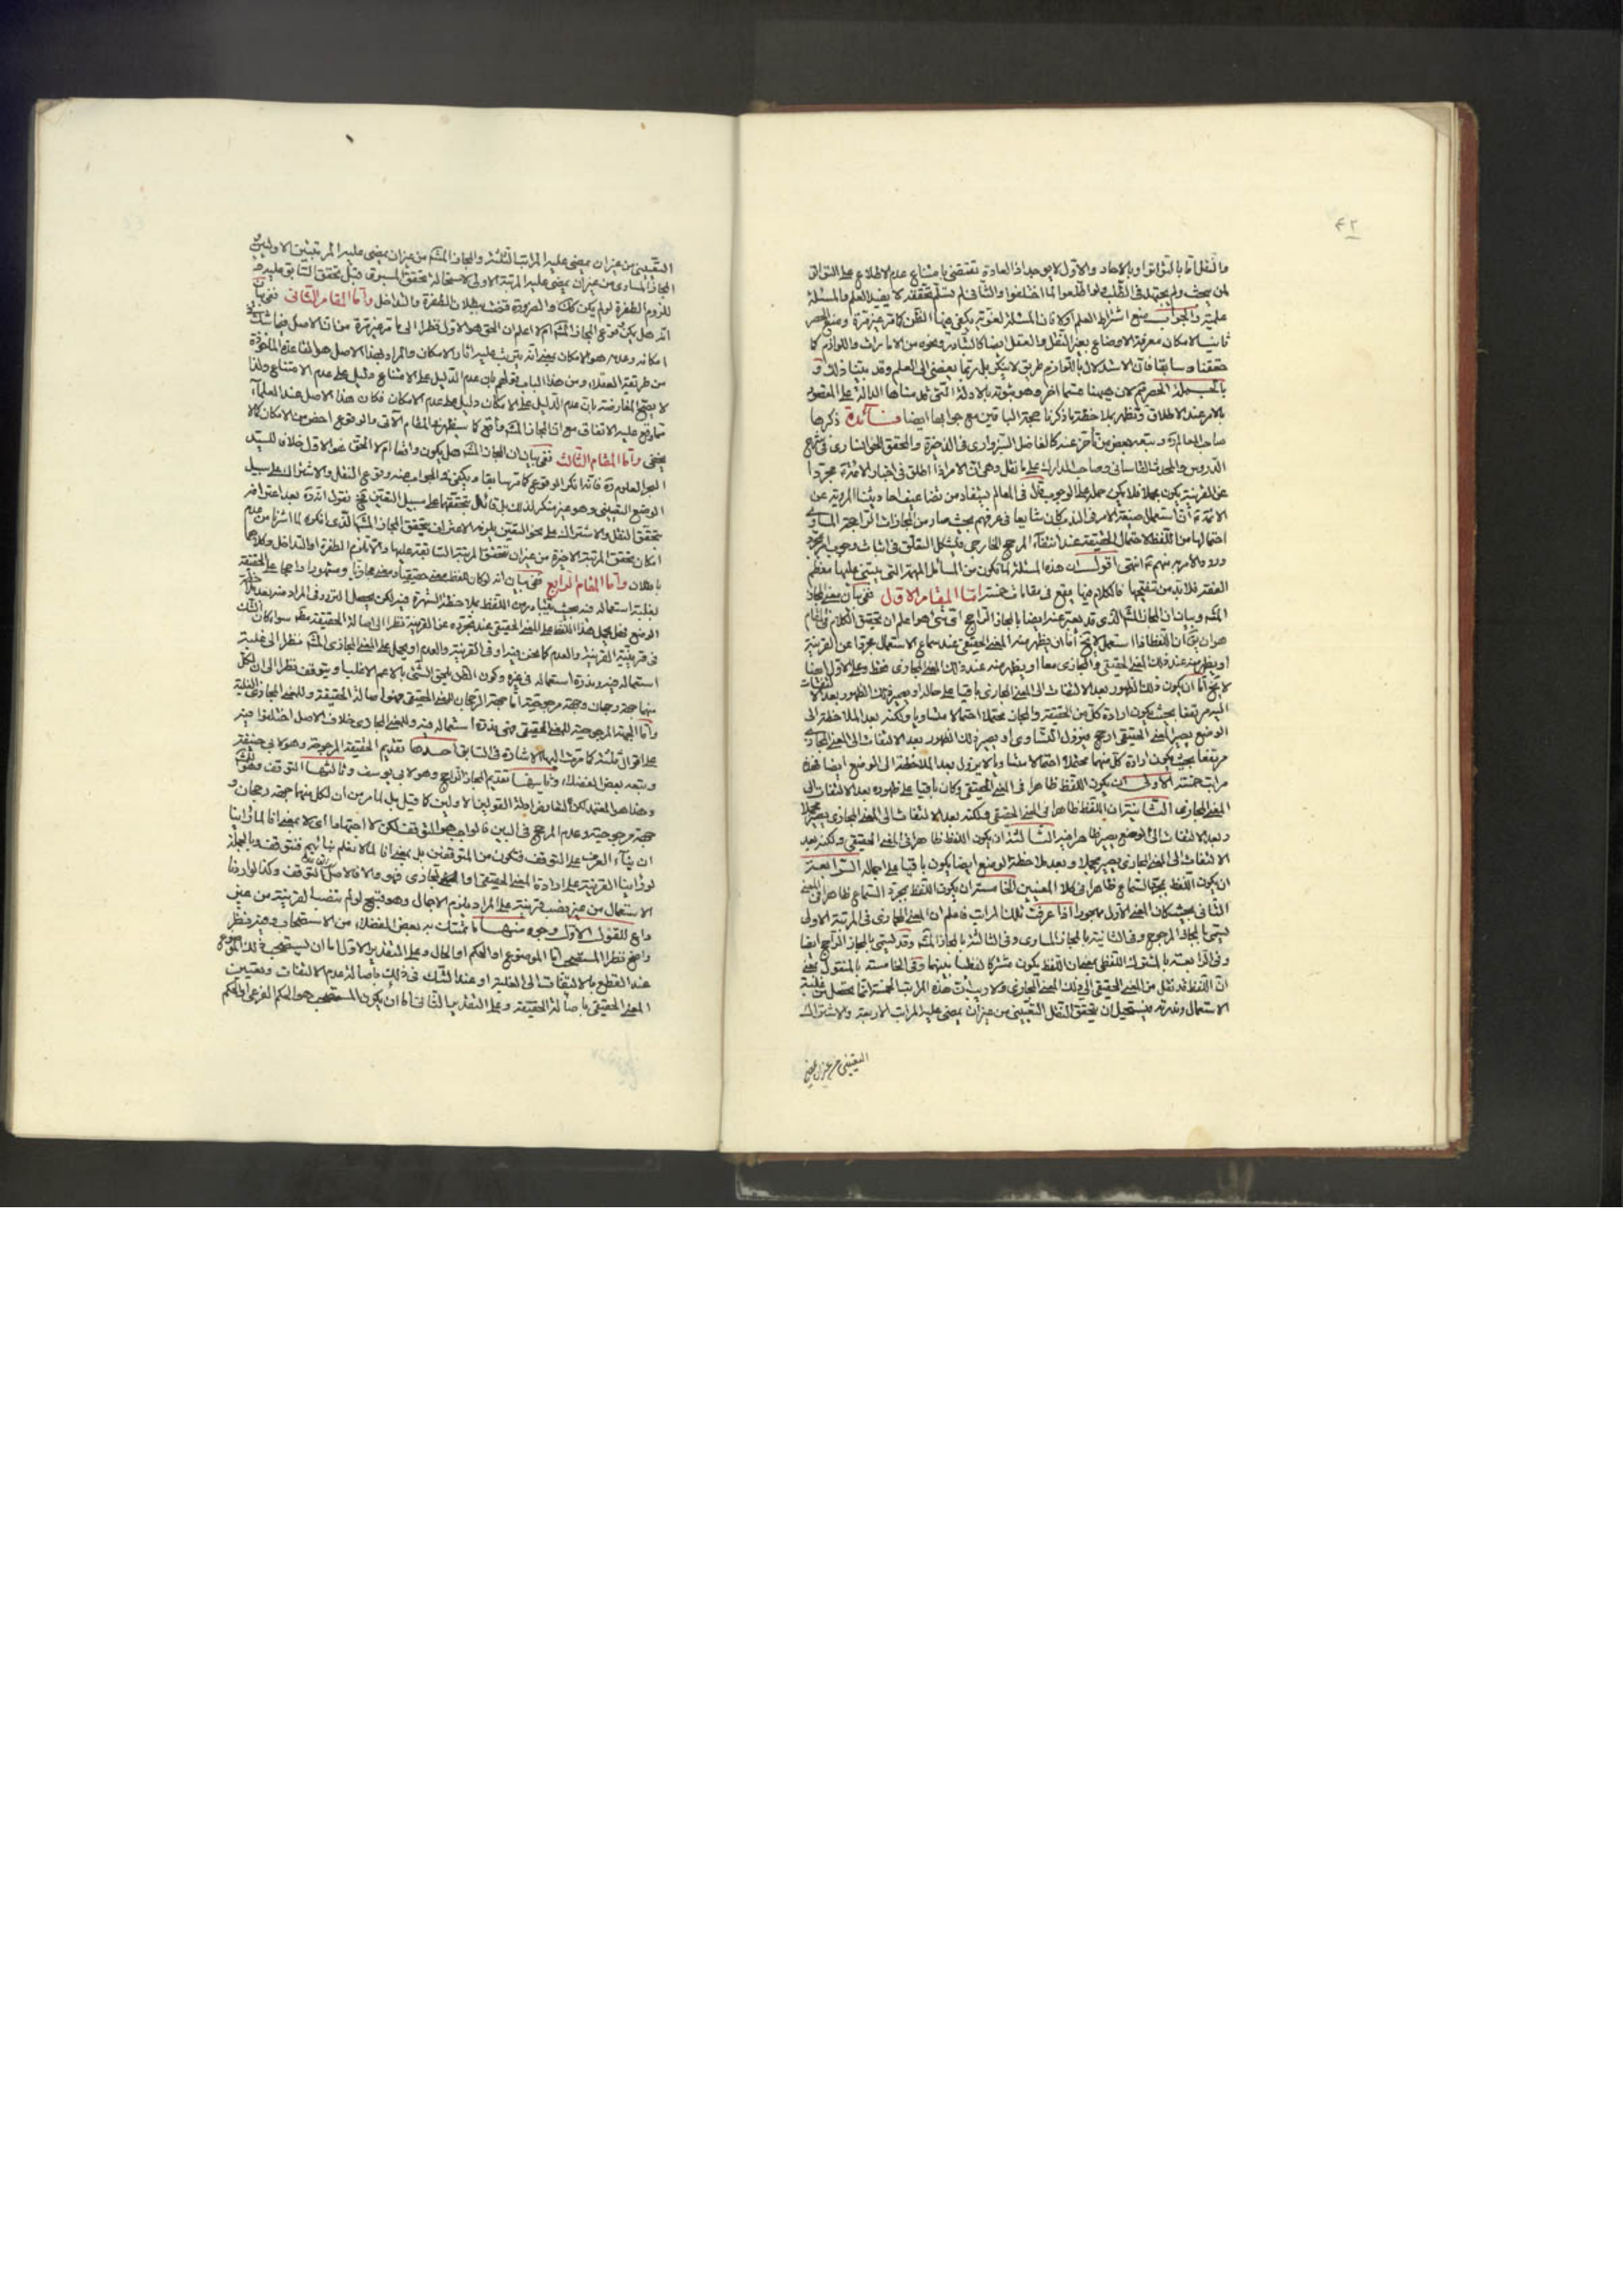 ٤٢
والنقل اما بالتواتر او بالاحاد والاول لا يوجد اذ العادة تقتضى بامتناع عدم الاطلاع على التواتر
لمن يبحث ولم يجتهد فى الطلب ولو اطلعوا لما اختلفوا والثانى لم نسلم تحققه لا يفيد العلم والمسئلة
علمية والجواب منع اشتراط العلم اولا فان المسئلة لغوية يكفى فيها الظن كما مر غير مرة ومنع الحصر
ثانيا لامكان معرفة الاوضاع بغير النقل والعقل ايضا كالتبادر ونحوه من الامارات واللوازم كما
حققنا سابقا فان الاستدلال باللوازم طريق لا ينكر بل ربما يفضى الى العلم وقد بينا ذلك و
بالجملة الحصر ثم لان هيهنا قسما اخر وهو ثبوته بالادلة التى قدمناها الدالة على المقصود
بالامر عند الاطلاق وتظهر بملاحظة ما ذكرنا حجة الباقين مع جوابها ايضا فائدة ذكرها
صاحب المعالم ره وتبعه بعض من تأخر عنه كالفاضل السبزوارى فى الذخيرة والمحقق الخوانسارى فى شرح
الدروس والمحدث القاسانى وصاحب المدارك على ما نقل وهى ان الامر اذا اطلق فى اخبار الائمة مجردا
عن القرينة يكون مجملا فلا يمكن حمله على الوجوب قال فى المعالم يستفاد من تضاعيف احاديثنا المروية عن
الائمة ان استعمال صيغة الامر فى الندب كان شايعا فى عرفهم بحيث صار من المجازات الراجحة المساوى
احتمالها من اللفظ لاحتمال الحقيقة عند انتفاء المرجح الخارجى فيشكل التعلق فى اثبات وجوب امر بمجرد
ورود الامر به منهم ع انتهى اقول ان هذه المسئلة لما تكون من المسائل المهمة التى يبتنى عليها معظم
الفقه فلا بد من تنقيحها فالكلام فيها يقع فى مقامات خمسة اما المقام الاول ففى بيان معنى المجاز
المشهور وبيان ان المجاز المشهور الذى قد يعبر عنه ايضا بالمجاز الراجح اى شئ هو اعلم ان تحقيق الكلام فى المقام
هو ان يق ان اللفظ اذا استعمل لا يخ اما ان يظهر منه المعنى الحقيقى عند سماع الاستعمال مجردا عن القرينة
او يظهر منه عند ذلك المعنى الحقيقى والمجازى معا او يظهر منه عند ذلك المعنى المجازى فقط وعلى الاول ايضا
لا يخ اما ان يكون ذلك الظهور بعد الالتفات الى المعنى المجازى باقيا على حاله او يصير ذلك الظهور بعد الالتفات
اليه مرتفعا بحيث يكون ارادة كل من الحقيقة والمجاز محتملة احتمالا متساويا ولكنه بعد الملاحظة الى
الوضع يصير المعنى الحقيقى ارجح فيزول التساوى او يصير ذلك الظهور بعد الالتفات الى المعنى المجازى
مرتفعا بحيث يكون ارادة كل منهما محتملة احتمالا متساويا لا يزول بعد الملاحظة الى الوضع ايضا فهذه
مراتب خمسة الاولى ان يكون اللفظ ظاهرا فى المعنى الحقيقى وكان باقيا على ظهوره بعد الالتفات الى
المعنى المجازى الثانية ان اللفظ ظاهرا فى المعنى الحقيقى ولكنه بعد الالتفات الى المعنى المجازى يصير مجملا
وبعد الالتفات الى الوضع يصير ظاهرا فيه الثالثة ان يكون اللفظ ظاهرا فى المعنى الحقيقى ولكنه بعد
الالتفات الى المعنى المجازى يصير مجملا وبعد ملاحظة الوضع ايضا يكون باقيا على اجماله الرابعة
ان يكون اللفظ بمجرد السماع ظاهرا فى كلا المعنيين الخامسة ان يكون اللفظ بمجرد السماع ظاهرا فى المعنى
الثانى بحيث كان المعنى الاول مهجورا اذا عرفت تلك المراتب فاعلم ان المعنى المجازى فى المرتبة الاولى
يسمى بالمجاز المرجوح وفى الثانية بالمجاز المساوى وفى الثالثة بالمجاز المشهور وقد يسمى بالمجاز الراجح ايضا
وفى الرابعة بالمشترك اللفظى بمعنى ان اللفظ يكون مشتركا لفظيا بينهما وفى الخامسة بالمنقول بمعنى
ان اللفظ قد نقل من المعنى الحقيقى الى ذلك المعنى المجازى ولا ريب ان هذه المراتب الخمسة انما يحصل من غلبة
الاستعمال وندرته فيستحيل ان يتحقق النقل التعينى من غير ان يمضى عليه المراتب الاربعة والاشتراك
التعينى من غير ان يمضى
التعينى من غير ان يمضى عليه المراتب الثلثة والمجاز المشهور من غير ان يمضى عليه المرتبتين الاوليين و
المجاز المساوى من غير ان يمضى عليه المرتبة الاولى لاستحالة تحقق المسبوق قبل تحقق السابق عليه
للزوم الطفرة لو لم يكن كك والضرورة قضت ببطلان الطفرة والتداخل واما المقام الثانى ففى بيان
انه هل يمكن وقوع المجاز المشهور ام لا اعلم ان الحق هو الاول نظرا الى ما مر غير مرة من ان الاصل فيما شك فى
امكانه وعدمه هو الامكان بمعنى انه يترتب عليه اثار الامكان والمراد بهذا الاصل هو القاعدة الماخوذة
من طريقة العقلاء ومن هذا الباب قولهم بان عدم الدليل على الامتناع دليل على عدم الامتناع ولذا
لا يصح المعارضة بان عدم الدليل على الامكان دليل على عدم الامكان فكان هذا الاصل عند العلماء
مما وقع عليه الاتفاق مع ان المجاز المشهور واقع كما سيظهر فى المقام الآتى والوقوع اخص من الامكان كما لا
يخفى واما المقام الثالث ففى بيان ان المجاز المشهور هل يكون واقعا ام لا الحق هو الاول خلافا للسيد
البحر العلوم ره فانه انكر الوقوع كما مر سابقا ويكفى فى الجواب عنه وقوع النقل والاشتراك على سبيل
الوضع التعينى وهو غير منكر لذلك بل قائل بتحققهما على سبيل التعين فح نقول انه ره بعد اعترافه
بتحقق النقل والاشتراك على نحو التعين يلزمه الاعتراف بتحقق المجاز المشهور الذى انكره لما اشرنا من عدم
امكان تحقق المرتبة الاخيرة من غير ان تتحقق المرتبة السابقة عليها والا لزم الطفرة او التداخل وكلاهما
باطلان واما المقام الرابع ففى بيان انه لو كان للفظ معنى حقيقيا ومعنى مجازيا ومشهورا راجحا على الحقيقة
لغلبة استعماله فيه بحيث يتبادر من اللفظ بملاحظة الشهرة فيه لكن يحصل التردد فى المراد منه بعد ملاحظة
الوضع فهل يحمل هذا اللفظ على المعنى الحقيقى عند تجرده عن القرينة نظرا الى اصالة الحقيقة مط سواء كان الشك
فى قرينية القرينة والعدم كما نحن فيه او فى القرينة والعدم او يحمل على المعنى المجازى المشهور نظرا الى غلبة
استعماله فيه وندرة استعماله فى غيره وكون الظن يلحق الشئ بالاعم الاغلب او يتوقف نظرا الى ان لكل
منهما جهة رجحان وجهة مرجوحية اما جهة الرجحان للمعنى الحقيقى فهو اصالة الحقيقة وللمعنى المجازى الغلبة
واما الجهة المرجوحية للمعنى الحقيقى فهى ندرة استعماله فيه وللمعنى المجازى خلاف الاصل اختلفوا فيه
على اقوال ثلثة كما مرت اليها الاشارة فى السابق احدها تقديم الحقيقة المرجوحة وهو لابى حنيفة
وتبعه بعض الفضلاء وثانيها تقديم المجاز الراجح وهو لابى يوسف وثالثها التوقف وهو
وهذا هو المعتمد لكن لا لتعارض ادلة القولين الاولين كما قيل بل لما مر من ان لكل منهما جهة رجحان و
جهة مرجوحية وعدم المرجح فى البين فالواجب هو التوقف لكن لا اجتهادا اى لا بمعنى انا لما راينا
ان بناء العرف على التوقف فنكون من المتوقفين بل بمعنى انا لما لا نعلم بنائهم فنتوقف وبالجملة
لو راينا القرينة على ارادة المعنى الحقيقى او المعنى المجازى فهو والا فالاصل التوقف وكذا لو اردنا
الاستعمال من غير نصب قرينة على المراد يلزم الاجمال وهو قبيح لو لم ننصب القرينة من عين
واع للقول الاول وجوه منها ما تمسك به بعض الفضلاء من الاستصحاب وفيه نظر
واضح نظرا المستصحب اما الموضوع او الحكم او الحال وعلى التقدير الاول اما ان يستصحب ذلك الموضوع
عند القطع بالالتفات الى الغلبة او عند الشك فى ذلك باصالة عدم الالتفات وتعيين
المعنى الحقيقى باصالة الحقيقة وعلى التقدير الثانى اما ان يكون المستصحب هو الحكم الفرعى او الحكم